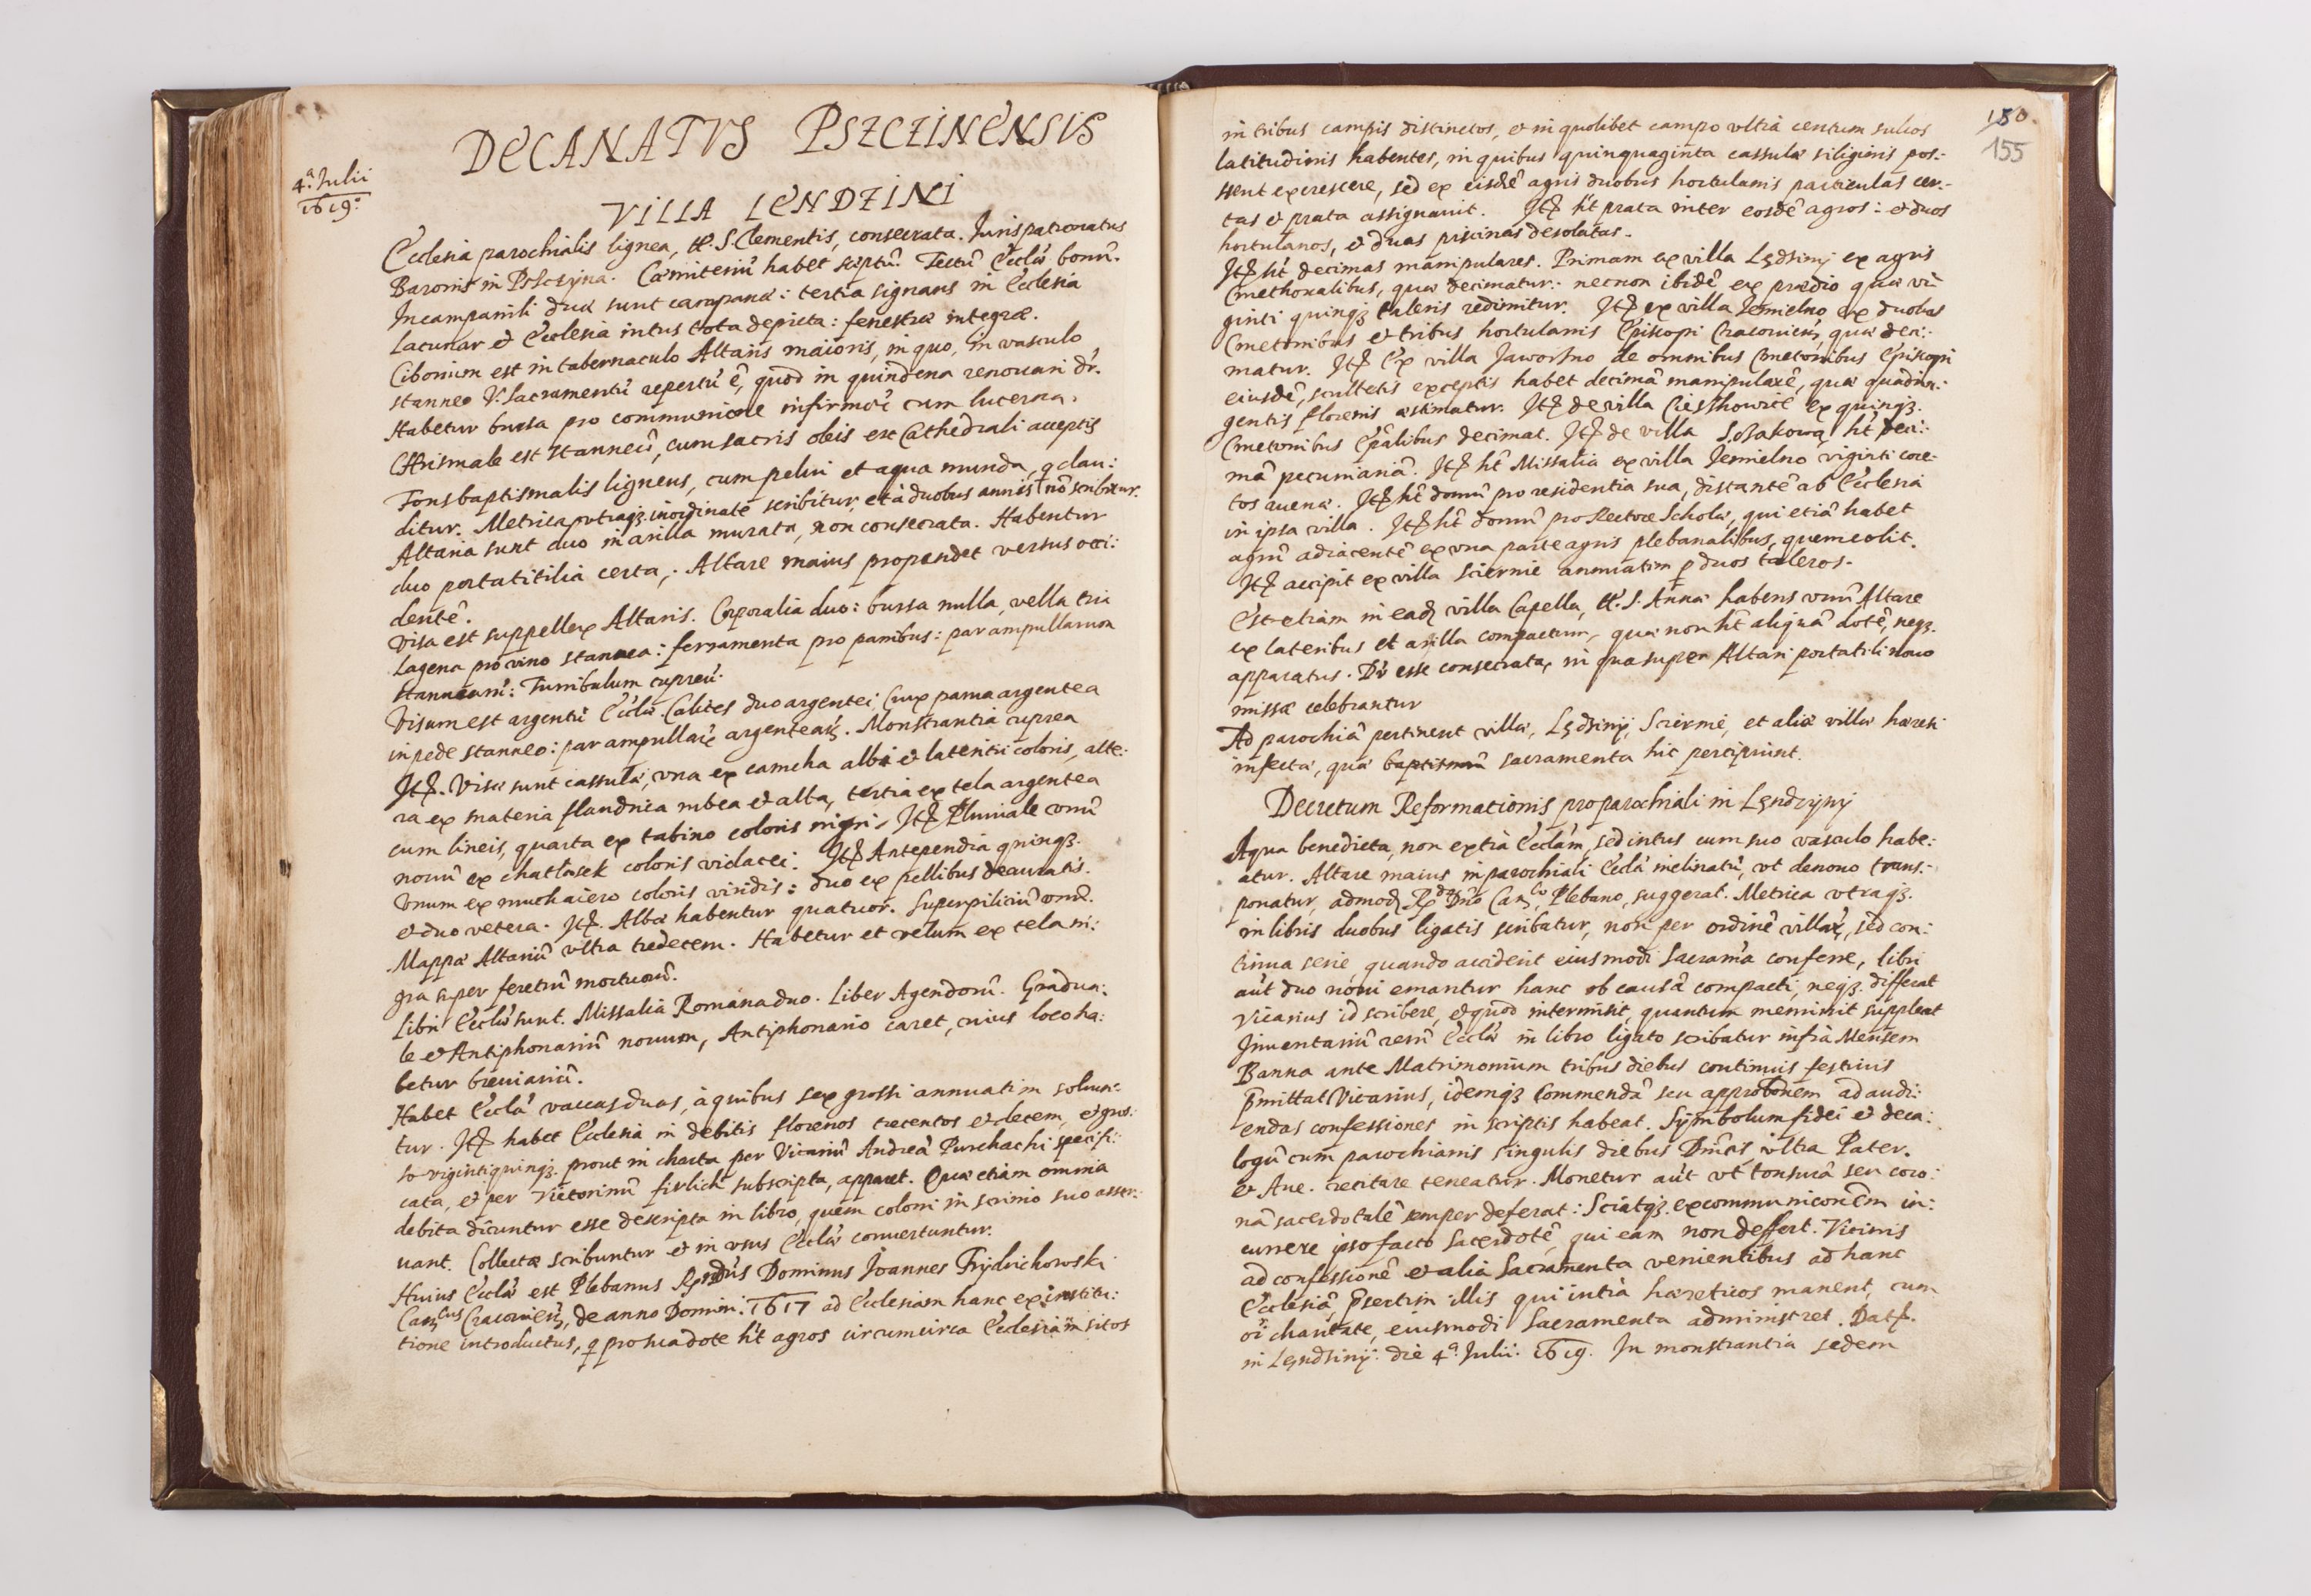 DECANATVS PSZCZINENSIS
4.ª Julii
1619.
VILLA LENDZINI
Ecclesia parochialis lignea, tt. S. Clementis, consecrata. Jurispatronatus
Baronis in Psczyna. Cœmiteriũ habet septũ. Tectũ Ecclæ bonũ.
In campanili duæ sunt campanæ: tertia signans in Ecclesia
Lacunar et Ecclesia intus tota depicta: fenestræ integræ.
Ciborium est in tabernaculo Altaris maioris, in quo, in vasculo
stanneo V. Sacramentũ repertũ ẽ, quod in quindena renouari dr.
Habetur bursa pro communione infirmorũ cum lucerna.
Chrismale est stanneũ, cum sacris oleis ex Cathedrali acceptis
Fons baptismalis ligneus, cum pelui et aqua munda, q clau:
ditur. Metrica utraqȝ inordinate scribitur, et à duobus annis nõ scribitur.
Altaria sunt duo in arilla murata, non consecrata. Habentur
duo portatitilia certa,. Altare maius propendet versus occi:
dentẽ.
Visa est suppellex Altaris. Corporalia duo: bursa nulla, vella tria
Lagena pro vino stannea: ferramenta pro panibus: par ampullarum
stannearũ: Turribulum cupreũ.
Visum est argentũ Ecclæ. Calices duo argentei, Crux parua argentea
in pede stanneo: par ampullarũ argentearũ. Monstrantia cuprea
Itẽ. Visæ sunt cassulæ, vna ex camcha albi et lateritii coloris, alte:
ra ex materia flandrica rubea et alba, tertia ex tela argentea
cum lineis, quarta ex tabino coloris nigri. Itẽ Pluuiale vnũ
nouũ ex chatlasek coloris violacei. Itẽ Antependia quinqȝ.
Vnum ex muchaiero coloris viridis: duo ex pellibus deauratis.
et duo vetera. Itẽ. Albæ habentur quatuor. Superpiliciũ vnũ.
Mappæ Altariũ vltra tredecem. Habetur et velum ex tela ni:
gra super feretrũ mortuorũ.
Libri Ecclæ sunt. Missalia Romana duo. Liber Agendorũ. Gradua:
le et Antiphonariũ nouum, Antiphonario caret, cuius loco ha:
betur breuiariũ.
Habet Eccla vaccas duas, à quibus sex grossi annuatim soluun:
tur. Itẽ habet Ecclesia in debitis florenos trecentos et decem, et gros:
so viginti quinqȝ. prout in charta per Vicariũ Andreã Purchachi specifi:
cata, et per Victorinũ firlich subscripta, apparet. Quæ etiam omnia
debita dicuntur esse descripta in libro, quem coloni in scrinio suo asser:
uant. Collectæ scribuntur et in vsus Ecclæ conuertuntur.
Huius Ecclæ est Plebanus Rndus Dominus Joannes Frydrichowski
Cancus Cracouien, de anno Domini: 1617 ad Ecclesiam hanc ex institu:
tione introductus, q pro sua dote ht agros circumcirca Ecclesiam sitos
180.
155
in tribus campis distinctos, et in quolibet campo vltrà centum sulcos
latitudinis habentes, in quibus quinquaginta cassulæ siliginis pos:
sent excrescere, sed ex eisdẽ agris duobus hortulanis particulas cer:
tas et prata assignauit. Itẽ ht prata inter eosdẽ agros: et duos
hortulanos, et duas piscinas desolatas.
Itẽ ht decimas manipulares. Primam ex villa Lędziny ex agris
Cmethonalibus, quæ decimatur: necnon ibidẽ ex prædio quæ vi:
ginti quinqȝ taleris redimitur. Itẽ ex villa Jemielno ex duobus
Cmetonibus et tribus hortulanis Episcopi Cracouien, quæ deci:
matur. Itẽ Ex villa Jaworzno de omnibus Cmetonibus Episcopi
eiusdẽ, scultetis exceptis habet decimã manipularẽ, quæ quadrin:
gentis florenis æstimatur. Itẽ de villa Cięszkowice ex quinqȝ.
Cmetonibus Epãlibus decimat. Itẽ de villa ht deci:
mã pecuniariã. Itẽ ht Missalia ex villa Jemielno viginti core:
tos auenæ. Itẽ ht domũ pro residentia sua, distantẽ ab Ecclesia
in ipsa villa. Itẽ ht domũ pro Rectore Scholæ, qui etiã habet
agrũ adiacentẽ ex vna parte agris plebanalibus, quem colit.
Itẽ accipit ex villa Sciernie annuatim p duos taleros.
Est etiam in eadẽ villa Capella, tt. S. Annæ habens vnũ Altare
ex lateribus et arilla compactum, quæ non ht aliquã dotẽ, neqȝ.
apparatus. Dr esse consecrata, in qua super Altari portatili nouo
missæ celebrantur
Ad parochiã pertinent villæ, Lędziny, Sciernie, et aliæ villæ hæresi
infectæ, quæ sacramenta hic percipiunt.
Decretum Reformationis pro parochiali in Lędzyny
Aqua benedicta, non extrà Ecclam, sed intus cum suo vasculo habe:
atur. Altare maius in parochiali Eccla inclinatũ, vt denouo trans:
ponatur, admodũ Rdo Dno Canco, Plebano, suggerat. Metrica vtraqȝ.
in libris duobus ligatis scribatur, non per ordinẽ villarũ, sed con:
tinua serie, quando acciderit eiusmodi Sacramẽta conferre, libri
aũt duo noui emantur hanc ob causã compacti, neqȝ. differat
Vicarius id scribere, et quod intermisit, quantum meminit suppleat
Inuentariũ rerũ Ecclæ in libro ligato scribatur infrà Mensem
Banna ante Matrimonium tribus diebus continuis festiuis
p̃mittat Vicarius, idemqȝ Commendã seu approbõnem ad audi:
endas confessiones in scriptis habeat. Symbolum fidei et deca:
logũ cum parochianis singulis diebus Dnicis, vltra Pater.
et Aue. recitare teneatur. Monetur aũt vt tonsurã seu coro:
nã sacerdotalẽ semper deferat: Sciatqȝ. excommuniconẽm in:
currere ipso facto Sacerdotẽ, qui eam non deffert. Vicinis
ad confessionẽ et alia Sacramenta venientibus ad hanc
Ecclesiã, p̃sertim illis qui intrà hæreticos manent, cum
oĩ charitate, eiusmodi Sacramenta administret. Datẽ.
in Lędziny: die 4.ª Julii. 1619. In monstrantia sedem